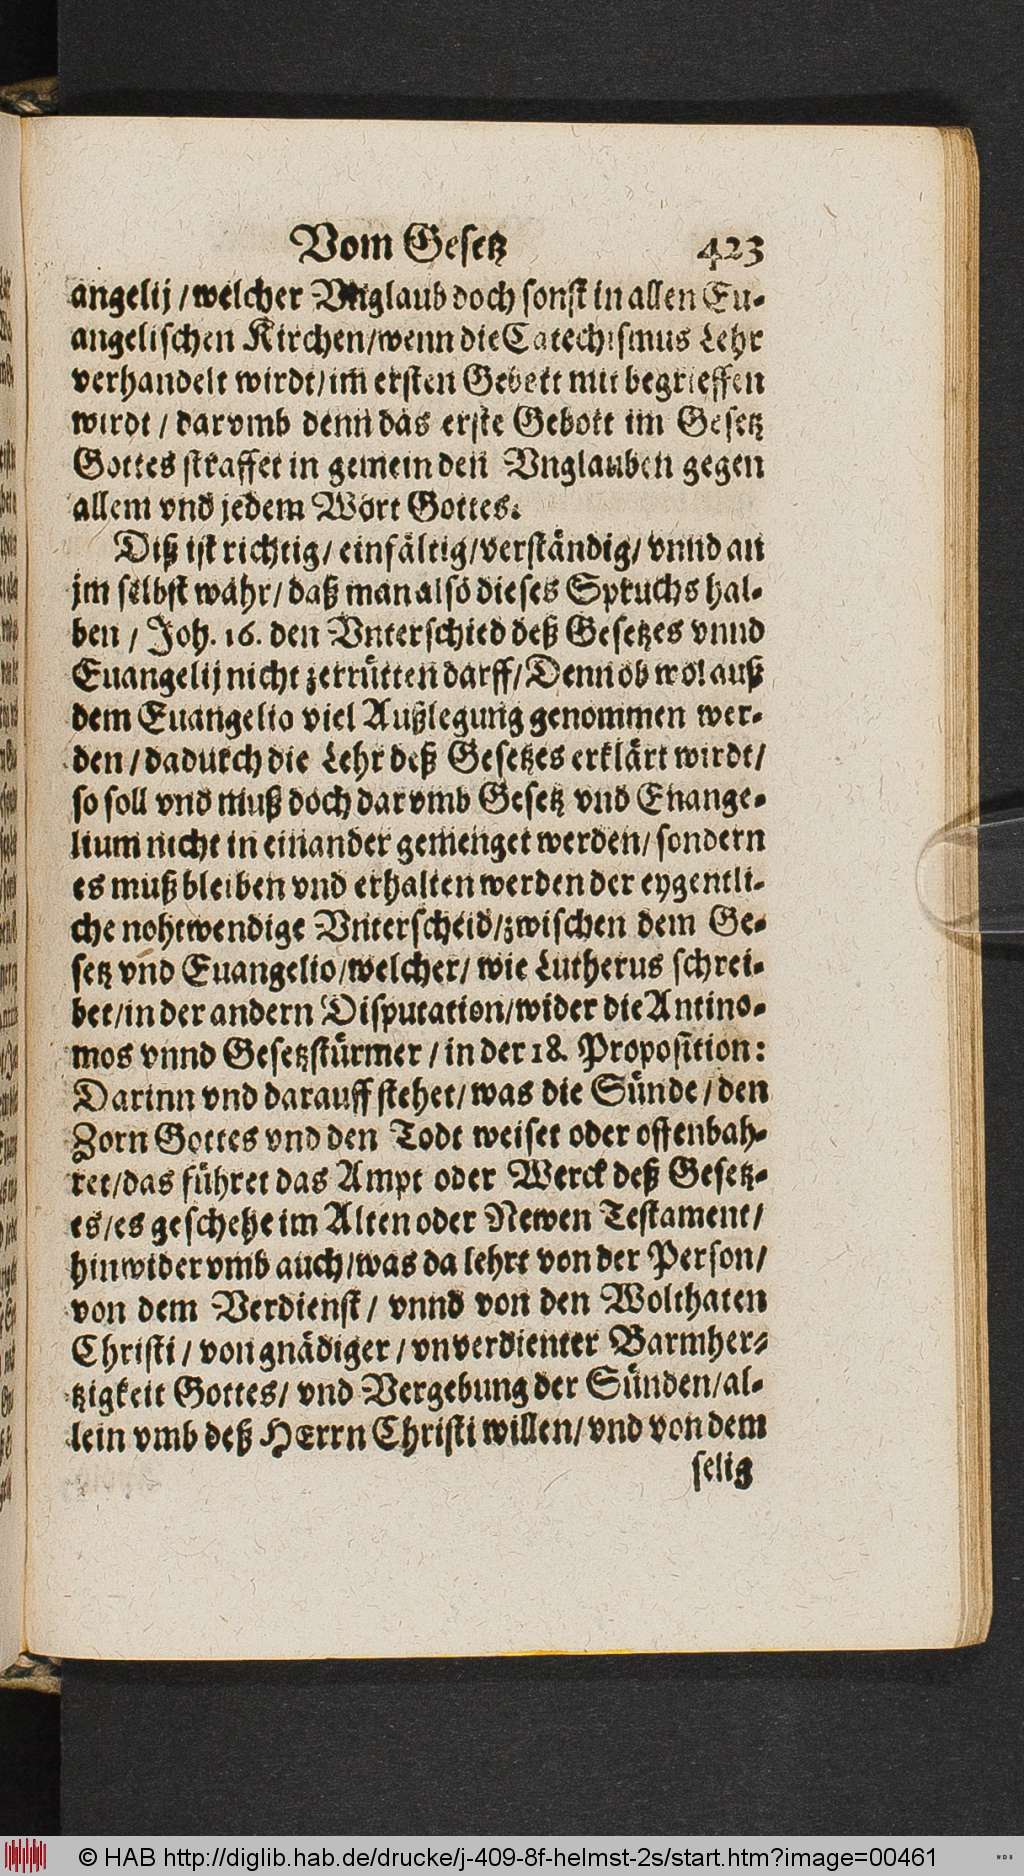 Vom Gesetz 423
angelij / welcher Vnglaub doch sonst in allen Eu-
angelischen Kirchen/wenn die Catechismus Lehr
verhandelt wirdt/im ersten Gebett mit begrieffen
wirdt / darvmb denn das erste Gebott im Gesetz
Gottes straffet in gemein den Vnglauben gegen
allem vnd jedem Wort Gottes.
Diß ist richtig/ einfältig/verständig/ vnnd an
jm selbst wahr/ daß man also dieses Spruchs hal-
ben / Joh. 16. den Vnterschied deß Gesetzes vnnd
Euangelij nicht zerrütten darff/ Denn ob wol auß
dem Euangelio viel Außlegung genommen wer-
den / dadurch die Lehr deß Gesetzes erklärt wirdt/
so soll vnd muß doch darvmb Gesetz vnd Enange-
lium nicht in einander gemenget werden/ sondern
es muß bleiben vnd erhalten werden der eygentli-
che nohtwendige Vnterscheid/zwischen dem Ge-
setz vnd Euangelio/welcher/ wie Lutherus schrei-
bet/in der andern Disputation/wider die Antino-
mos vnnd Gesetzstürmer / in der 18. Proposition:
Darinn vnd darauff stehet/ was die Sünde / den
Zorn Gottes vnd den Todt weiset oder offenbah-
ret/das führet das Ampt oder Werck deß Gesetz-
es/es geschehe im Alten oder Newen Testament/
hinwider vmb auch/was da lehrt von der Person/
von dem Verdienst / vnnd von den Wolthaten
Christi / von gnädiger / vnverdienter Barmher-
tzigkeit Gottes/ vnd Vergebung der Sünden/al-
lein vmb deß HErrn Christi willen/ vnd von dem
selig
© HAB http://diglib.hab.de/drucke/j-409-8f-helmst-2s/start.htm?image=00461